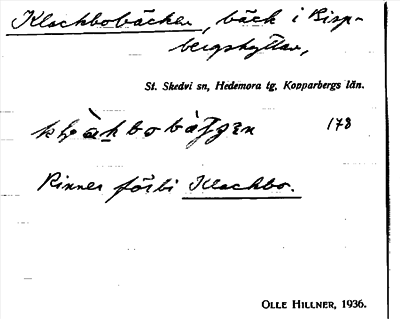 Klackbobäcken, bäck i Risp-
bergshyttan,
St. Skedvi sn, Hedemora tg, Kopparbergs län.
178
Rinner förbi Klackbo.
OLLE HILLNER, 1936.